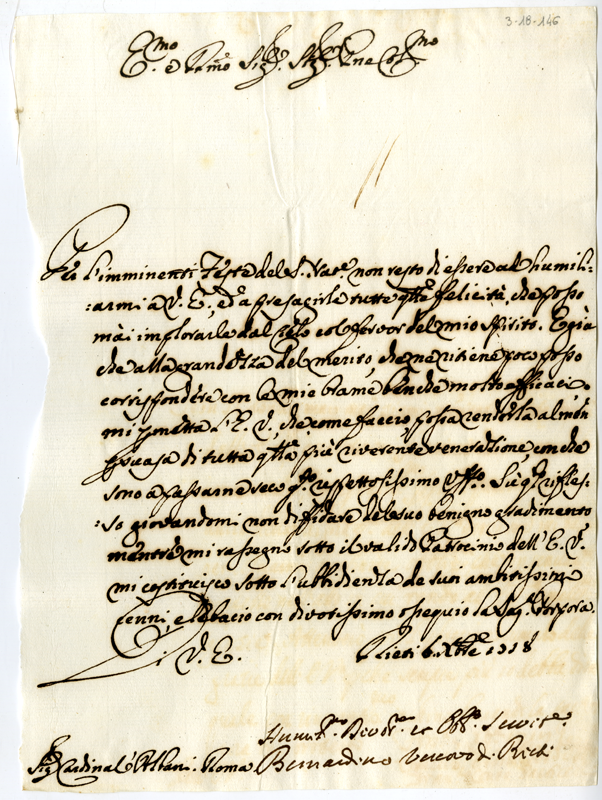 3-18-146
E.mo e R.mo Sig.r Sig.r P̃ne Col.mo
Per l'imminenti Feste del S. Nat.e non resto di essere ad humili-
:armi à V. E., ed a presagirle tutte q̃lle felicità, che posso
mài implorarle dal Cielo col fervor del mio spirito. E già
che alla grandezza del merito, che ne ritiene poco posso
corrispondere con le mie brame benche molto efficaci,
mi permetta l'E. V., che, come faccio, possa renderla almen
p̃suasa di tutta q̃lla più riverente venerazione, con che
sono a passarne seco q.to rispettosissimo uff.o. Sù q.to rifles-
:so giovandomi non diffidare del suo benigno gradimento
mentre mi rassegno sotto il valido Patrocinio dell'E. V.
mi costituisco sotto l'ubbidienza de suoi ambitissimi
cenni, e le bacio con divotissimo ossequio la Sag. Porpora.
Di V. E. Rieti 6 Xbre 1718
Humil.mo Devot.mo et Obl.mo Servit.e
Sig.r Cardinal Albani. Roma Bernardino Vescovo di Rieti